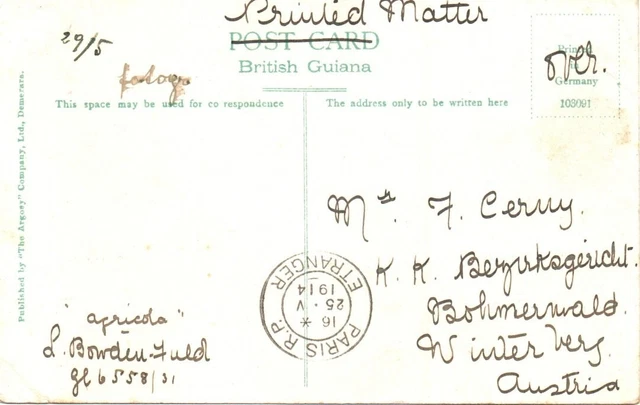 Printed Matter
29/5
POST CARD
British Guiana
fotog.
Printed in Germany
103091
over.
This space may be used for co respondence
The address only to be written here
Published by "The Argosy" Company, Ltd., Demerara.
Mr. F. Cerny.
K. K. Bezirksgericht.
Bohmerwald.
Winterberg.
Austria
PARIS R.P.
ETRANGER
16 *
25 · V
1914
"agricola"
L. Bowden-Fuld
gl 6558/31